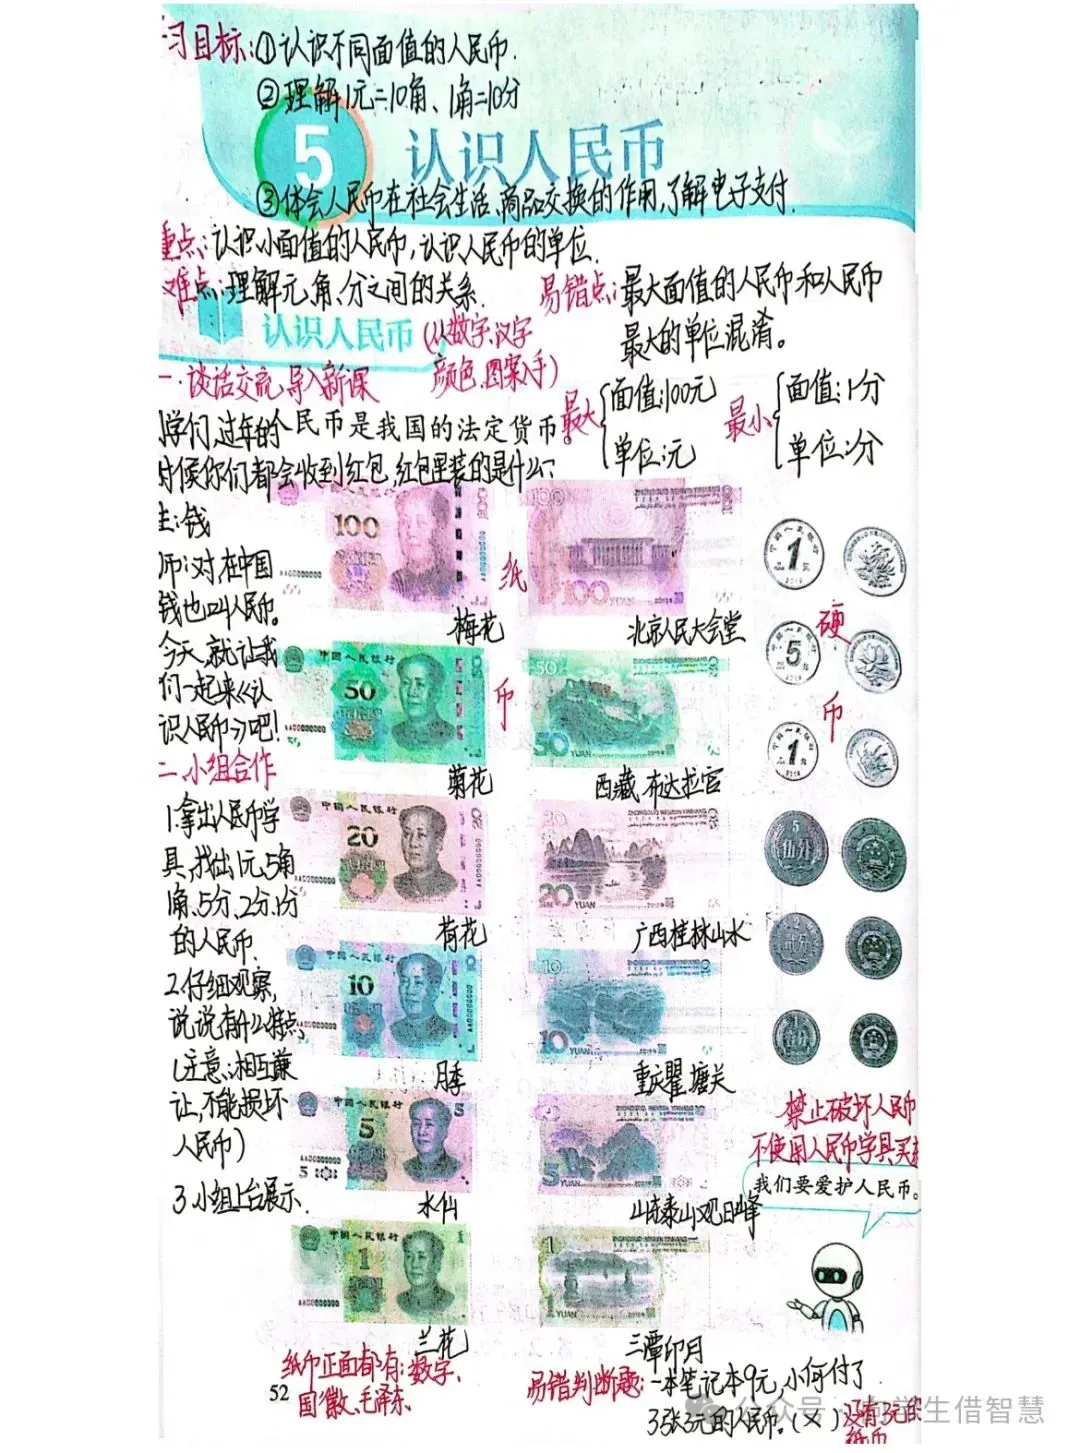 习目标:①认识不同面值的人民币.
②理解1元=10角、1角=10分
5 认识人民币
③体会人民币在社会生活、商品交换的作用,了解电子支付.
重点:认识小面值的人民币,认识人民币的单位.
难点:理解元、角、分之间的关系.
易错点:最大面值的人民币和人民币
最大的单位混淆。
认识人民币
(从数字、汉字
颜色、图案入手)
一.谈话交流,导入新课
最大
面值:100元
单位:元
最小
面值:1分
单位:分
同学们,过年的
人民币是我国的法定货币。
时候你们都会收到红包,红包里装的是什么?
生:钱
师:对,在中国
钱也叫人民币。
今天,就让我
们一起来《认
识人民币》吧!
二.小组合作
1.拿出人民币学
具,找出1元、5角
1角、5分、2分、1分
的人民币.
2.仔细观察,
说说有什么特点.
(注意:相互谦
让,不能损坏
人民币)
3.小组上台展示.
纸
币
硬
币
100
100
100 YUAN
梅花
北京人民大会堂
中国人民银行
50
50
50 YUAN
菊花
西藏布达拉宫
中国人民银行
20
20
20 YUAN
荷花
广西桂林山水
中国人民银行
10
10
10 YUAN
月季
重庆瞿塘关
中国人民银行
5
5 YUAN
水仙
山东泰山观日峰
中国人民银行
1
1 YUAN
兰花
三潭印月
中国人民银行
1元
5角
1角
禁止破坏人民币
不使用人民币学具买东
我们要爱护人民币。
纸币正面都有:数字、
国徽、毛泽东.
52
易错判断题:一本笔记本9元,小何付了
3张3元的人民币。(×)
没有3元的
纸币
公众号·向学生借智慧